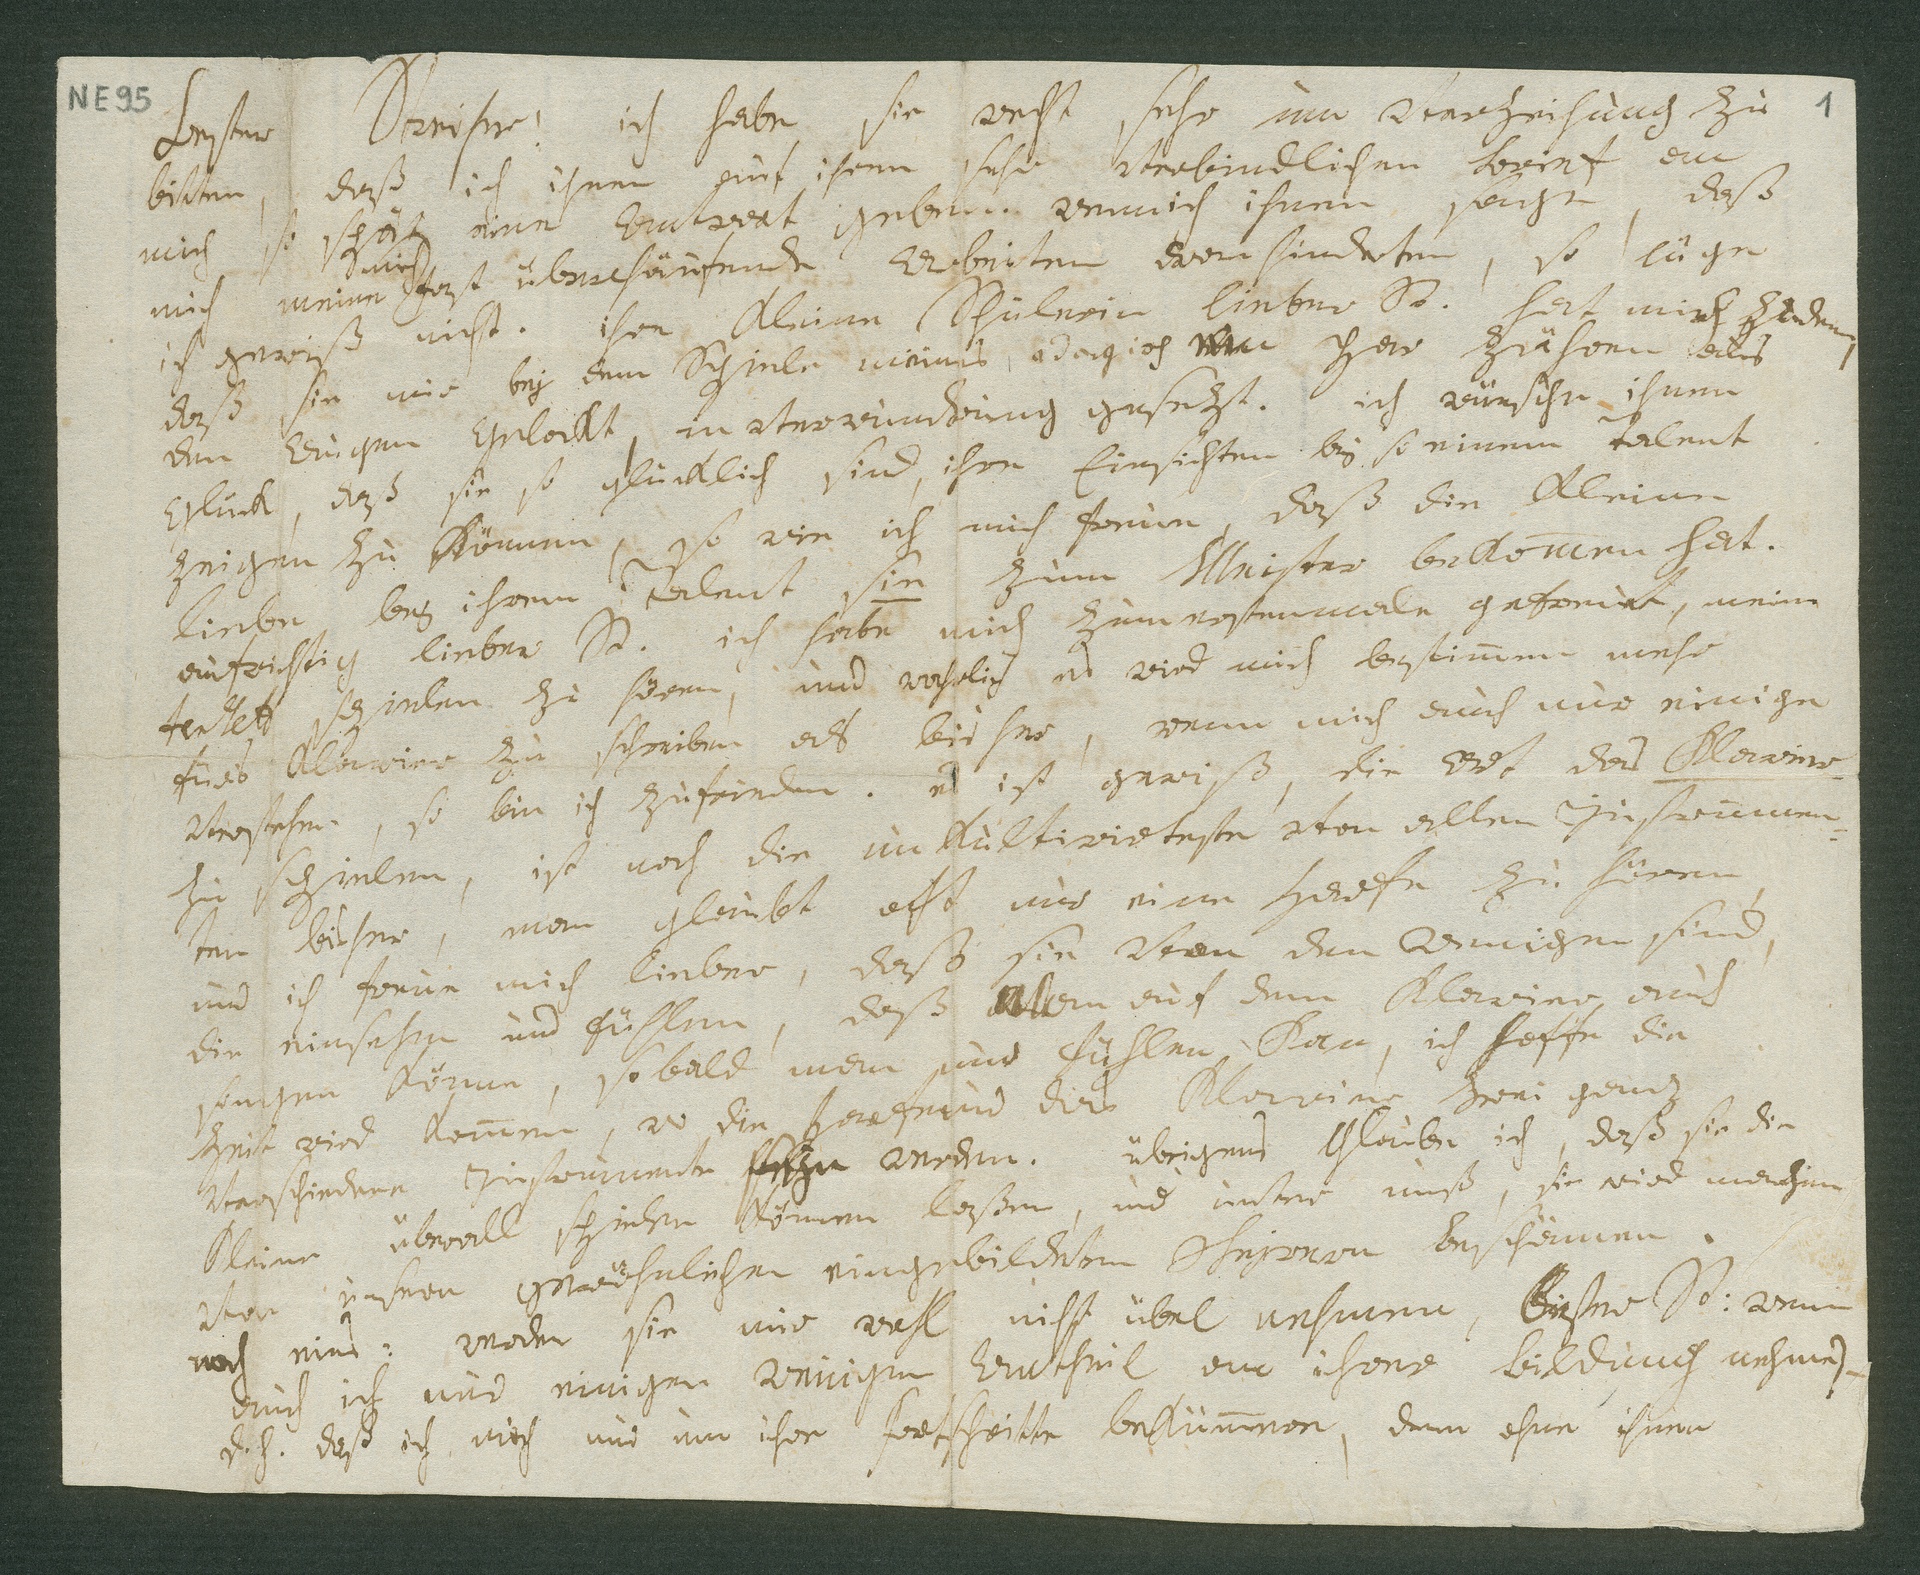 NE95
1
bester Streicher! ich habe sie recht sehr um Verzeihung zu
bitten, daß ich ihnen auf ihren sehr verbindlichen brief an
mich so spät eine Antwort geben. wenn ich ihnen sage, daß
mich meine mich fast überhäufende Arbeiten verhinderten, so lüge
ich gewiß nicht. ihre kleine Schülerin lieber St. hat mich zudem,
daß sie mir bey dem Spiele meines adagios ein Par Zähren aus
den Augen gelockt, in verwunderung gesezt. ich wünsche ihnen
Glück, daß sie so glücklich sind, ihre Einsichten bej so einem talent
zeigen zu können, so wie ich mich freue, daß die kleine
liebe bej ihrem Talent sie zum Meister bekommen hat.
aufrichtig lieber St. ich habe mich zum erstenmale getraut, mein
terzett spielen zu hören, und wahrlich es wird mich bestimmen mehr
fürs klawier zu schreiben als bisher, wenn mich auch nur einige
verstehen, so bin ich zufrieden. es ist gewiß, die Art das Klawier
zu spielen, ist noch die unkultiwirteste von allen Instrumen-
ten bisher, man glaubt oft nur eine harfe zu hören,
und ich freue mich lieber, daß sie von den wenigen sind,
die einsehen und fühlen, daß man auf dem Klawier auch
singen könne, sobald man nur fühlen kan, ich hoffe die
Zeit wird kommen, wo die harfe und das Klawier zwei ganz
verschiedene Instrumente seyn werden. übrigens glaube ich, daß sie die
Kleine überall spielen können laßen, und unter uns, sie wird manchen
von unsern gewöhnlichen eingebildeten Leyrern beschämen.
noch eins: werden sie mir wohl nicht übel nehmen, bester St: wenn
auch ich nur einigen wenigen Antheil an ihrer bildung nehme,-
d.h. daß ich mich nur um ihre fortschritte bekümmre, denn ohne ihnen